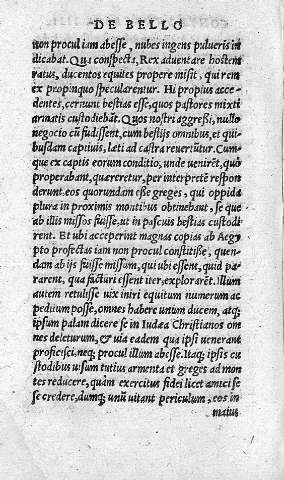 DE BELLO
non procul iam abesse, nubes ingens pulueris in
dicabat. Qua conspecta, Rex aduentare hostem
ratus, ducentos equites propere misit, qui rem
ex propinquo specularentur. Hi propius acce-
dentes, cernunt bestias esse, quos pastores mixti
armatis custodiebāt. Quos nostri aggressi, nullo
negotio cū fudissent, cum bestijs omnibus, et qui-
busdam captiuis, læti ad castra reuertūtur. Cum-
que ex captis eorum conditio, unde uenirēt, quò
properabant, quæreretur, per interpretē respon
derunt. eos quorundam esse greges, qui oppida
plura in proximis montibus obtinebant, se que
ab illis missos fuisse, ut in pascuis bestias custodi
rent. Et ubi acceperint magnas copias ab Aegy
pto profectas iam non procul constitiße, quen-
dam ab ijs fuisse missum, qui ubi essent, quid pa-
rarent, qua facturi essent iter, explorarēt. Illum
autem retulisse uix iniri equitum numerum ac
peditum posse, omnes habere unum ducem, atq;
ipsum palam dicere se in Iudæa Christianos om
nes deleturum, & uia eadem qua ipsi uenerant
proficisci, neq; procul illum abesse. Itaq; ipsis cu
stodibus uisum tutius armenta et greges ad mon
tes reducere, quàm exercitus fidei licet amici se
se credere, dumq; unū uitant periculum, eos in
maius